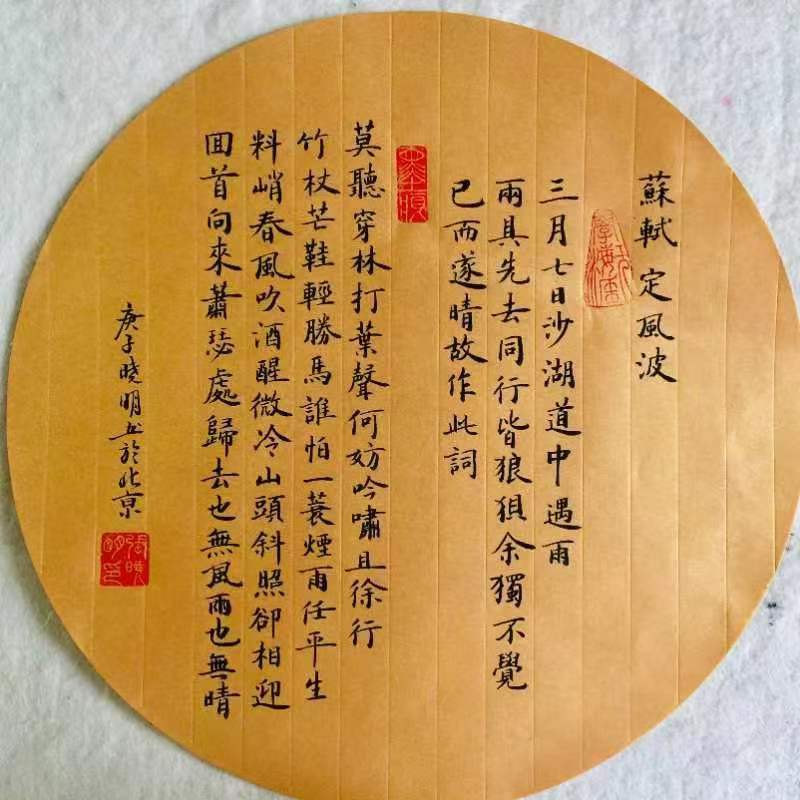 蘇軾 定風波
三月七日沙湖道中遇雨
兩具先去同行皆狼狽余獨不覺
已而遂晴故作此詞
莫聽穿林打葉聲何妨吟嘯且徐行
竹杖芒鞋輕勝馬誰怕一蓑煙雨任平生
料峭春風吹酒醒微冷山頭斜照卻相迎
回首向來蕭瑟處歸去也無風雨也無晴
庚子曉明书於北京